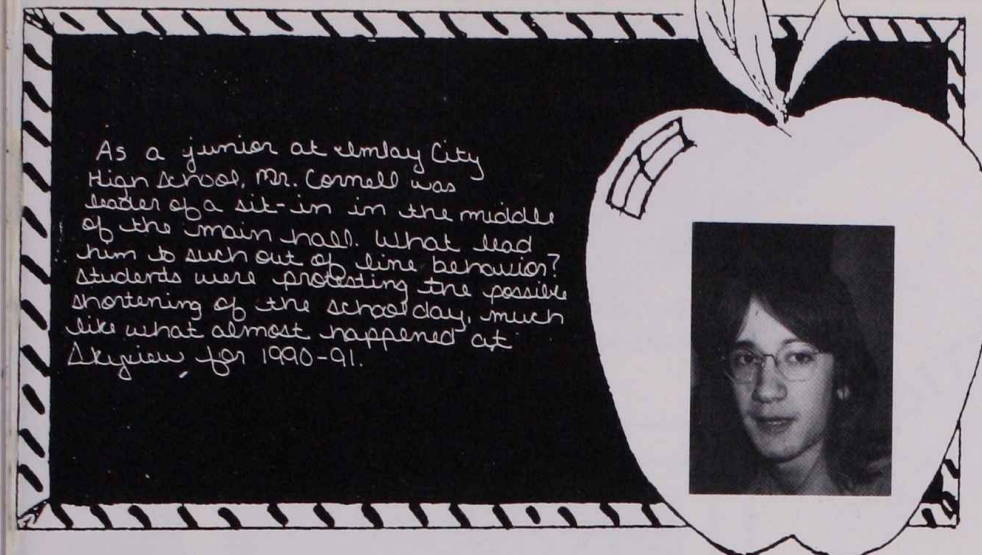 As a junior at Imlay City
High School, Mr. Cornell was
leader of a sit-in in the middle
of the main hall. What lead
him to such out of line behavior?
Students were protesting the possible
shortening of the school day, much
like what almost happened at
Skyview for 1990-91.